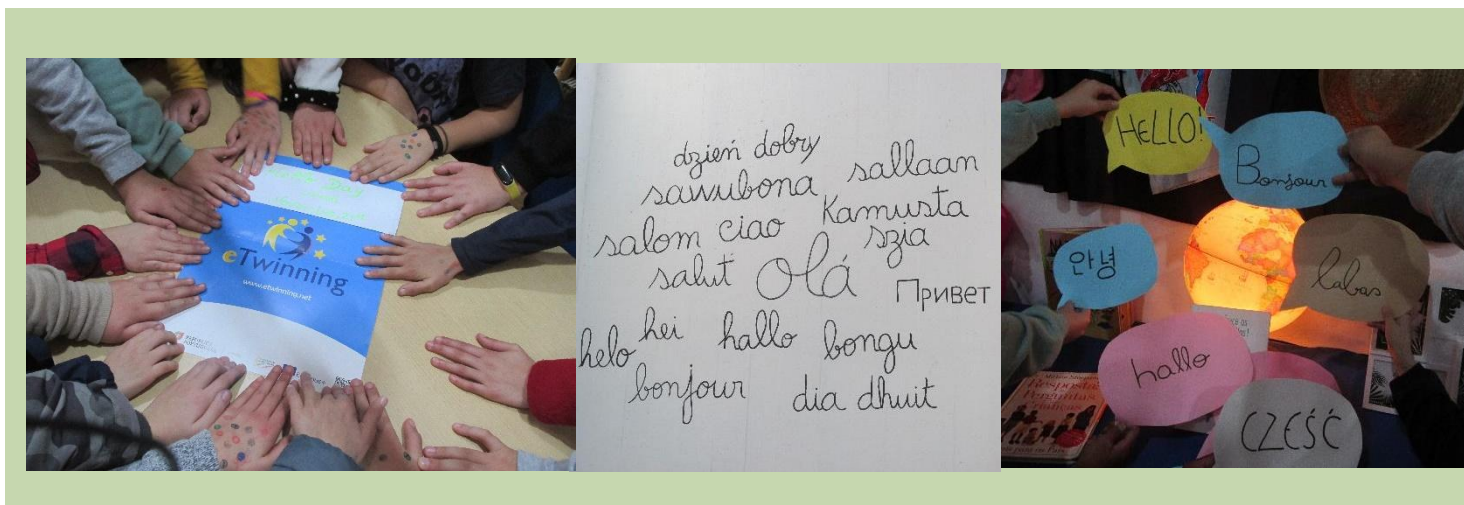 eTwinning
www.etwinning.net
dzień dobry
sawubona sallaan
salom ciao Kamusta
szia
salut Olá Привет
helo hei hallo bongu
bonjour dia dhuit
HELLO!
Bonjour
안녕
labas
hallo
CZEŚĆ